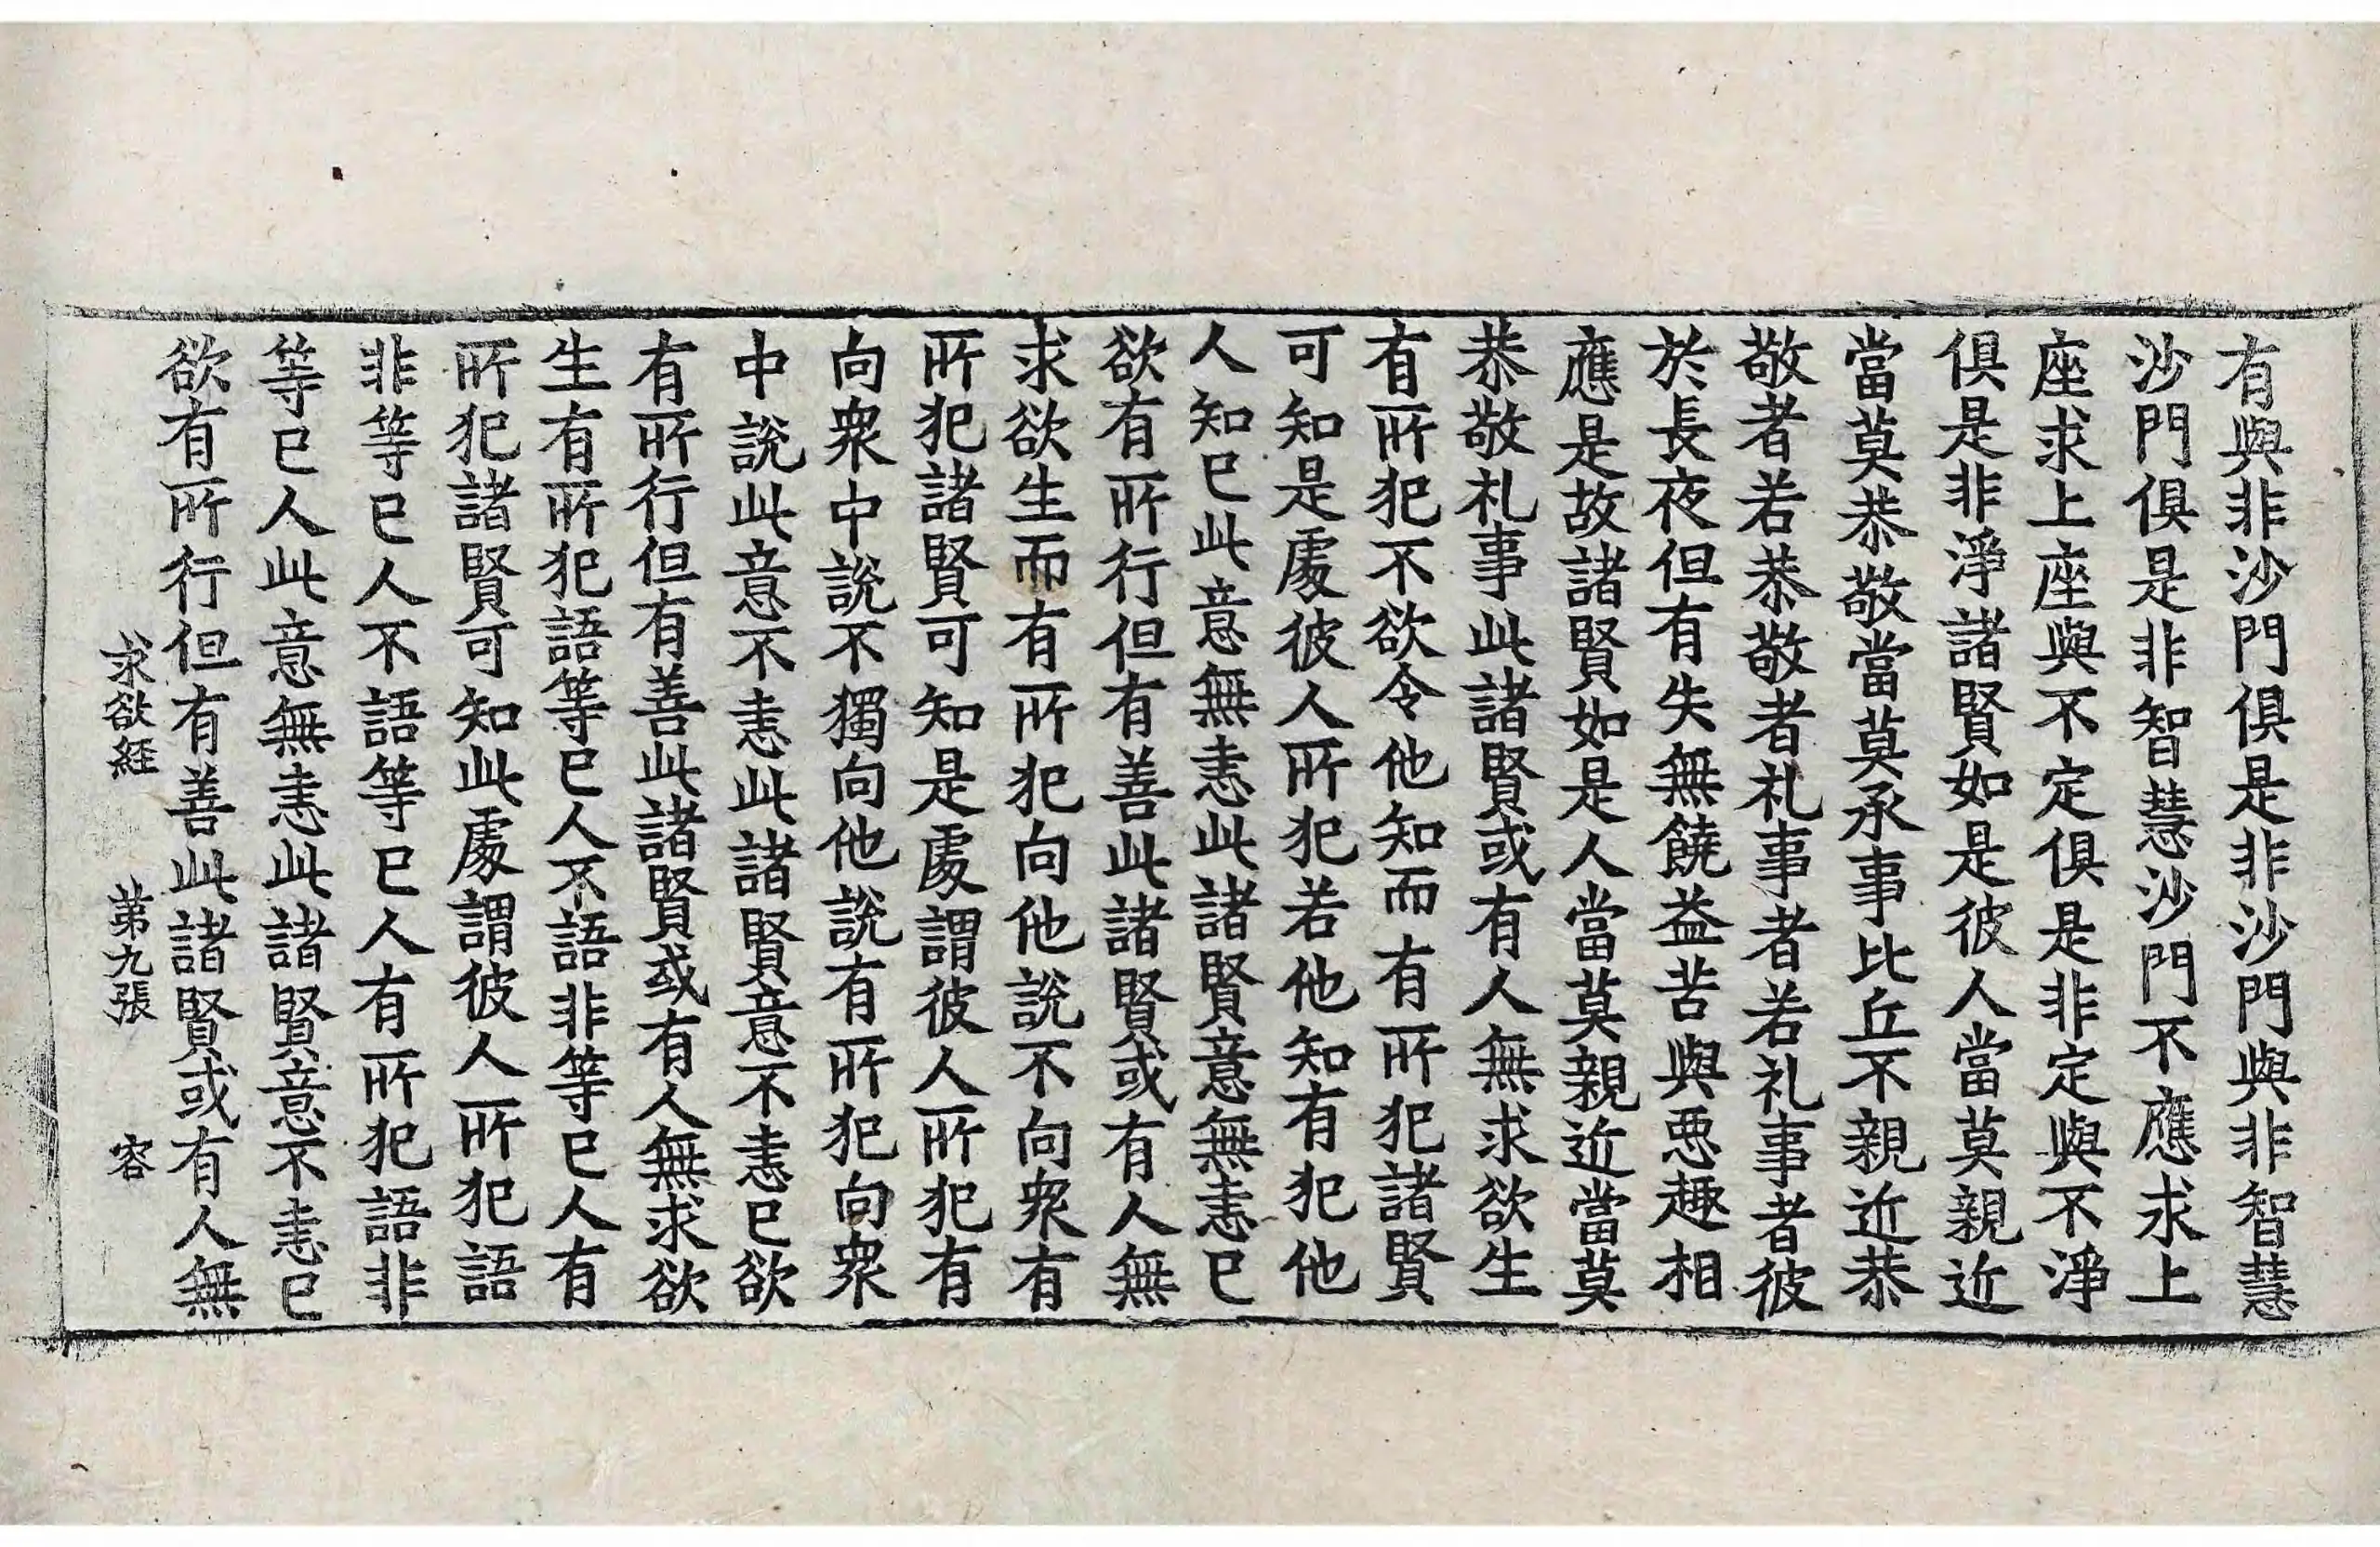 有與非沙門俱是非沙門與非智慧
沙門俱是非智慧沙門不應求上
座求上座與不定俱是非定與不淨
俱是非淨諸賢如是彼人當莫親近
當莫恭敬當莫承事比丘不親近恭
敬者若恭敬者礼事者若礼事者彼
於長夜但有失無饒益苦與惡趣相
應是故諸賢如是人當莫親近當莫
恭敬礼事此諸賢或有人無求欲生
有所犯不欲令他知而有所犯諸賢
可知是處彼人所犯若他知有犯他
人知已此意無恚此諸賢意無恚已
欲有所行但有善此諸賢或有人無
求欲生而有所犯向他說不向衆有
所犯諸賢可知是處謂彼人所犯有
向衆中說不獨向他說有所犯向衆
中說此意不恚此諸賢意不恚已欲
有所行但有善此諸賢或有人無求欲
生有所犯語等已人不語非等已人有
所犯諸賢可知此處謂彼人所犯語
非等已人不語等已人有所犯語非
等已人此意無恚此諸賢意不恚已
欲有所行但有善此諸賢或有人無
求欲經 第九張 容